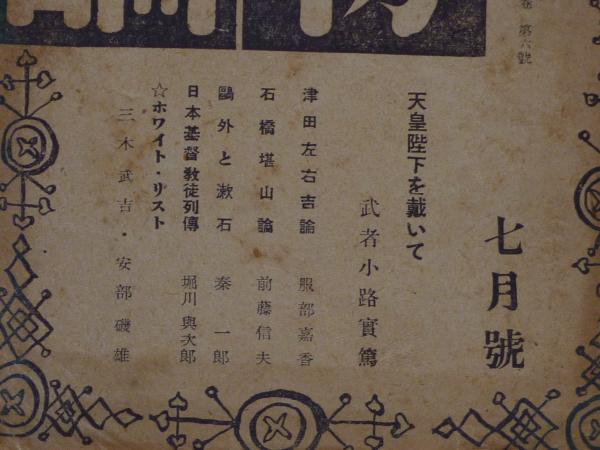 第六號
七月號
天皇陛下を戴いて
武者小路實篤
津田左右吉論 服部嘉香
石橋堪山論 前藤信夫
鷗外と漱石 秦一郎
日本基督敎徒列傳 堀川與次郎
☆ホワイト・リスト
三木武吉・安部磯雄